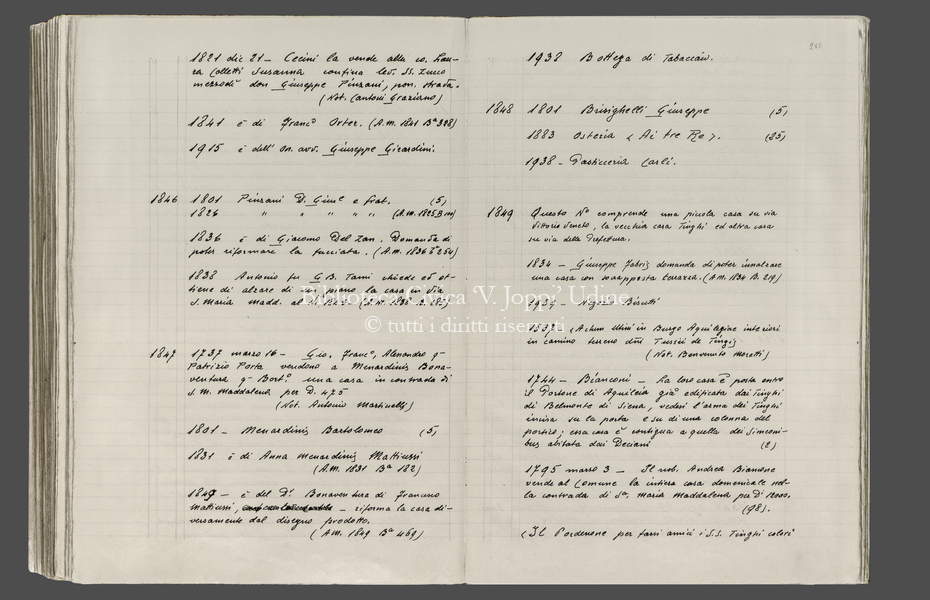 1821 dic 21 – Cecini la vende alla co. Lau-
ra Colletti Susanna confina lev. SS. Zucco
mezzodì don Giuseppe Pinzani, pon. strada.
(Not. Cantoni Graziano)
1841 è di Franc.º Orter. (A.M. 1841 Bª 328)
1915 è dell' On. avv. Giuseppe Girardini.
1846 1801 Pinzani D. Gius.e e frat. (5)
1826 " " " " " (A.M. 1825 B
1836 è di Giacomo Del Zan. Domanda di
poter riformare la facciata. (A.M. 1836 Bª 254)
1838 Antonio fu G B. Tami chiede ed ot-
tiene di alzare di un piano la casa in via
S. Maria Madd. al
1847 1737 marzo 16 – Gio. Franc.º, Alessandro q–
Patrizio Porta vendono a Menardiniz Bona-
ventura q– Bort.º una casa in contrada di
S. M. Maddalena per D. 475
(Not. Antonio Martinelli)
1801 – Menardiniz Bartolomeo (5)
1831 è di Anna Menardiniz Mattiussi
(A.M. 1831 Bª 182)
1849 – è del D.r Bonaventura di Francesco
Mattiussi, – riforma la casa di-
versamente dal disegno prodotto.
(A.M. 1849 Bª 469)
1938 Bottega di Tabaccaio.
1848 1801 Brisighelli Giuseppe (5)
1883 Osteria < Ai tre Re >. (25)
1938 – Pasticceria Carli.
1849 Questo Nº comprende una piccola casa su via
Vittorio Veneto, la vecchia casa Tinghi ed altra casa
su via della Prefettura.
1834 – Giuseppe Fabriz domanda di poter innalzare
una casa con sovrapposta terrazza. (A.M. 1834 B. 219)
Negozio Bisutti
1537 (Actum Utini in Burgo Aquilegine interiori
in camino domini Tinghi
(Not. Benvenuto Morotti)
1744 – Bianconi – La loro casa è posta entro
il Portone di Aquileia già edificata dai Tinghi
di Belmonte di Siena, vedesi l'arma dei Tinghi
incisa su la porta e su di una colonna del
portico; essa casa è contigua a quella dei Simeoni-
bus abitata dai Deciani (2)
1795 marzo 3 – Il nob. Andrea Biancone
vende al Comune la intiera casa domenicale nel-
la contrada di S.ª Maria Maddalena per D.i 12000.
(98).
(Il Pordenone per farsi amici i S.S. Tinghi colorì
Biblioteca Civica 'V. Joppi' Udine
© tutti i diritti riservati